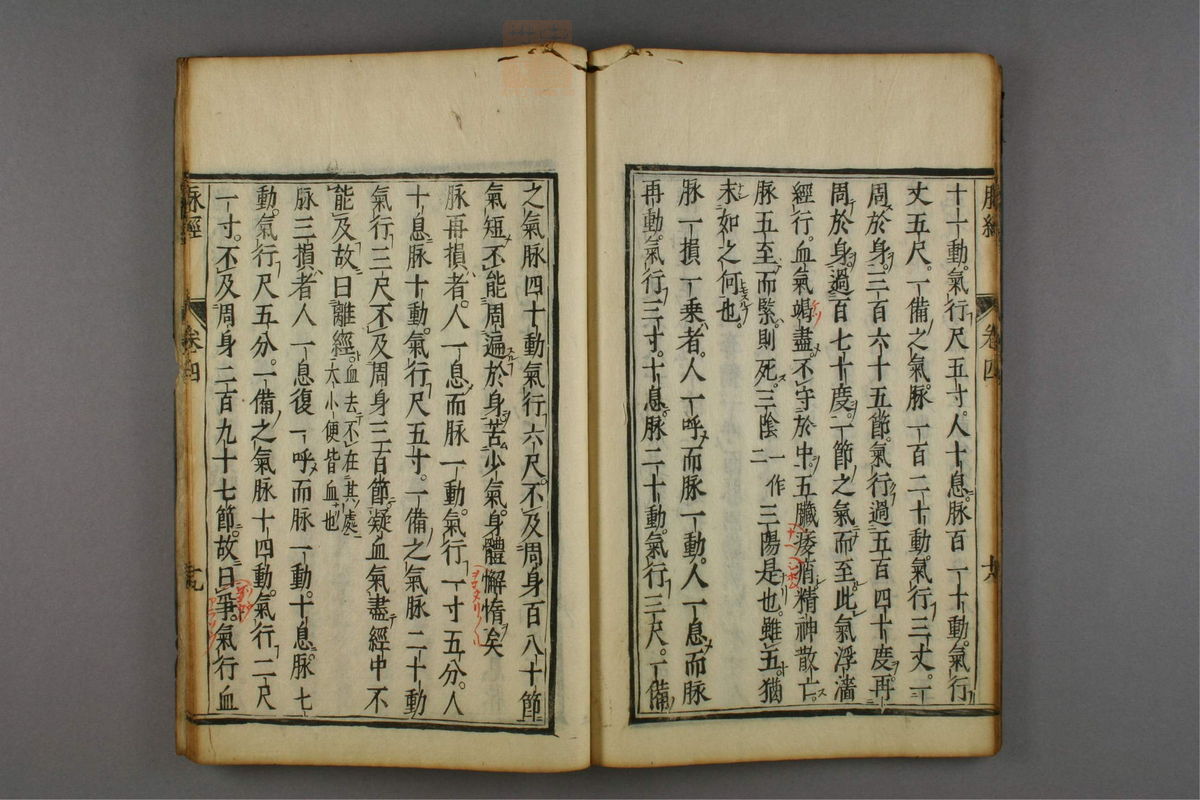 脉經 卷四
十十動。氣行尺五寸。人十息。脉百一十動。氣行
丈五尺。一備之氣。脉一百二十動。氣行三丈。一
周於身。三百六十五節。氣行過五百四十度。再
周於身。過百七十度。一節之氣而至此。氣浮濇
經行。血氣竭盡。不守於中。五臟痿痟。精神散亡。
脉五至而緊。則死。三陰一作二三陽是也。雖五猶
末如之何也。
脉一損一乘者。人一呼而脉一動。人一息而脉
再動。氣行三寸。十息。脉二十動。氣行三尺。一備
之氣脉四十動氣行六尺。不及周身百八十節
氣短不能周遍於身。苦少氣。身體懈惰矣
脉再損者。人一息而脉一動。氣行一寸五分。人
十息脉十動。氣行尺五寸。一備之氣脉二十動
氣行三尺不及周身三百節疑血氣盡經中不
能及故曰離經。血去不在其處大小便皆血也
脉三損者人一息復一呼而脉一動。十息脉七
動。氣行尺五分。一備之氣脉十四動。氣行二尺
一寸。不及周身二百九十七節。故曰爭。氣行血
脉經 卷四